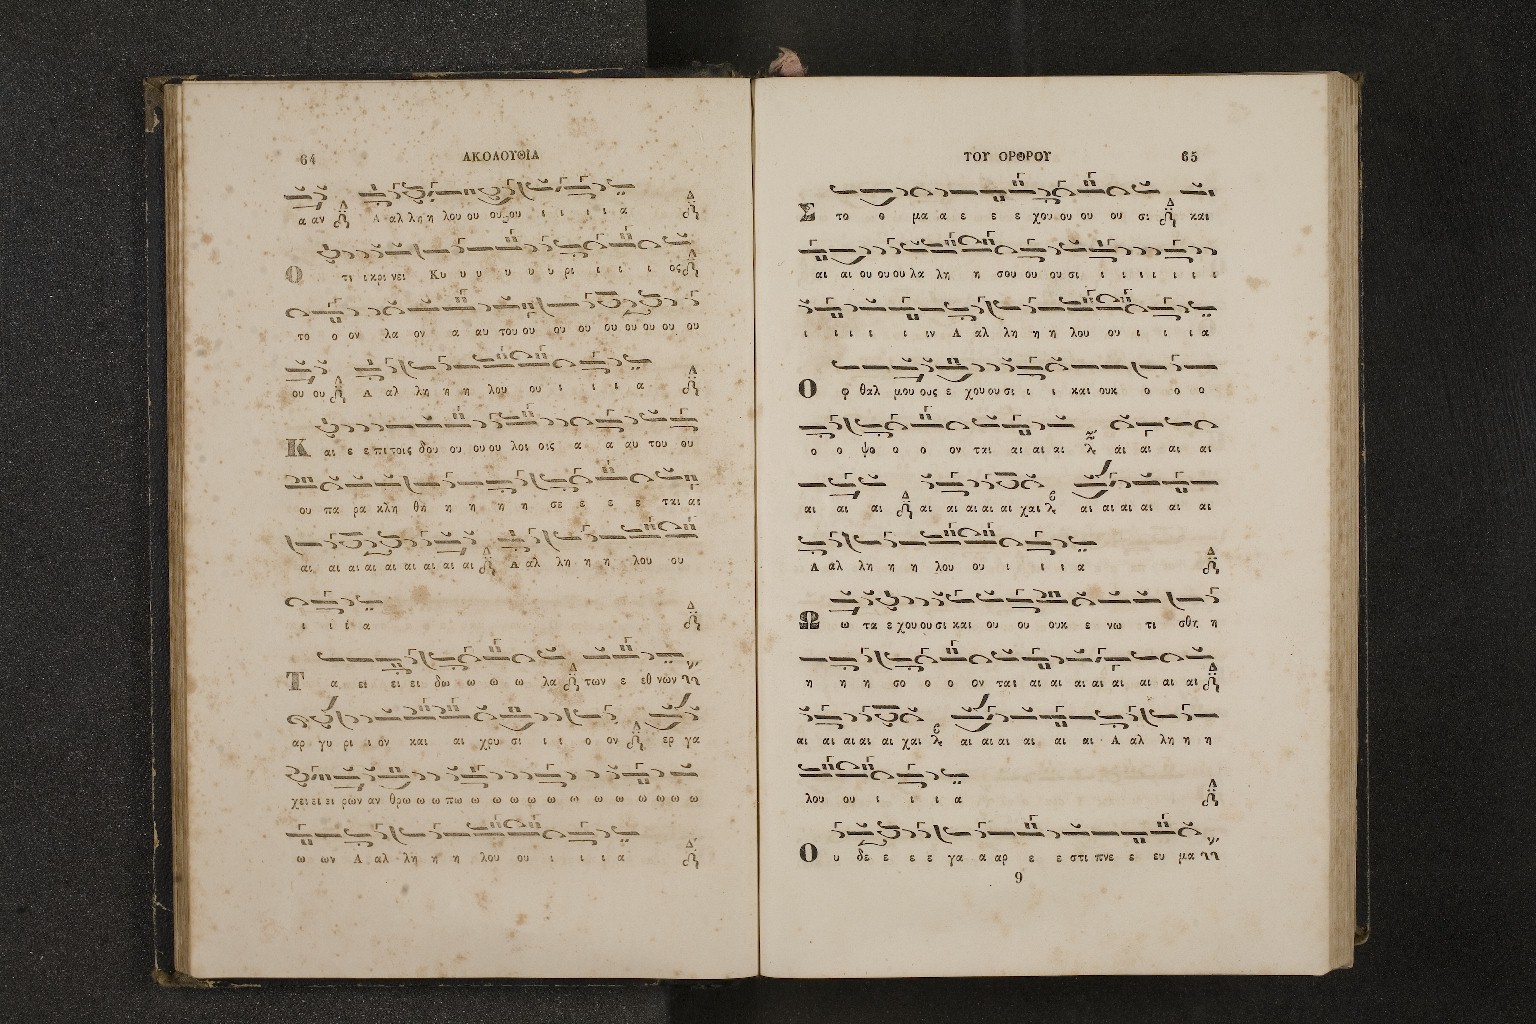 64 ΑΚΟΛΟΥΘΙΑ
α αν Α αλ λη η λου ου ου ου ι ι ι ι α
Ο τι ι κρι νει Κυ υ υ υ υ υ ρι ι ι ι ος
το ο ον λα ον α αυ του ου ου ου ου ου ου ου ου
ου ου Α αλ λη η η λου ου ι ι ι α
Κ αι ε ε πι τοις δου ου ου ου λοι οις α α αυ του ου
ου πα ρα κλη θη η η η η σε ε ε ε ται αι
αι αι αι αι αι αι αι αι αι Α αλ λη η η λου ου
ι ι ι α
Τ α ει ει ει δω ω ω ω λα των ε εθ νων
αρ γυ ρι ι ον και αι χρυ σι ι ι ο ον ερ γα
χει ει ει ρων αν θρω ω ω πω ω ω ω ω ω ω ω ω ω ω ω
ω ων Α αλ λη η η λου ου ι ι ι α
ΤΟΥ ΟΡΘΡΟΥ 65
Σ το ο μα α ε ε ε χου ου ου ου σι και
αι αι ου ου ου λα λη η σου ου ου σι ι ι ι ι ι ι
ι ι ι ι ι ιν Α αλ λη η η λου ου ι ι ι α
Ο φ θαλ μου ους ε χου ου σι ι ι και ουκ ο ο ο
ο ο ψο ο ο ον ται αι αι αι αι αι αι αι
αι αι αι αι αι αι αι αι χαι αι αι αι αι αι αι
Α αλ λη η η λου ου ι ι ι α
Ω ω τα ε χου ου σι και ου ου ουκ ε νω τι σθη η
η η η σο ο ο ον ται αι αι αι αι αι αι αι αι
αι αι αι αι αι χαι αι αι αι αι αι αι Α αλ λη η η
λου ου ι ι ι α
Ο υ δε ε ε ε γα α αρ ε ε στι πνε ε ευ μα
9